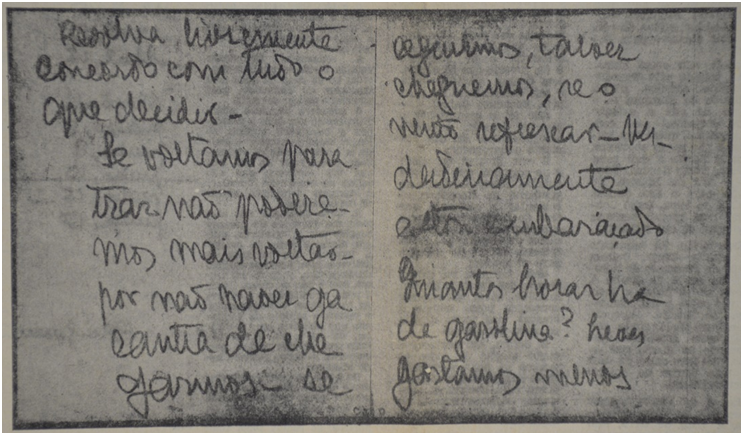 Resolva livremente
concordo com tudo o
que decidir -
Se voltamos para
traz não podere-
mos mais voltar -
por não haver ga
rantia de che
garmos - se
seguirmos, talvez
cheguemos, se o
vento refrescar - Ver-
dadeiramente
estou embaraçado
Quantas horas ha
de gasolina?
gastamos menos